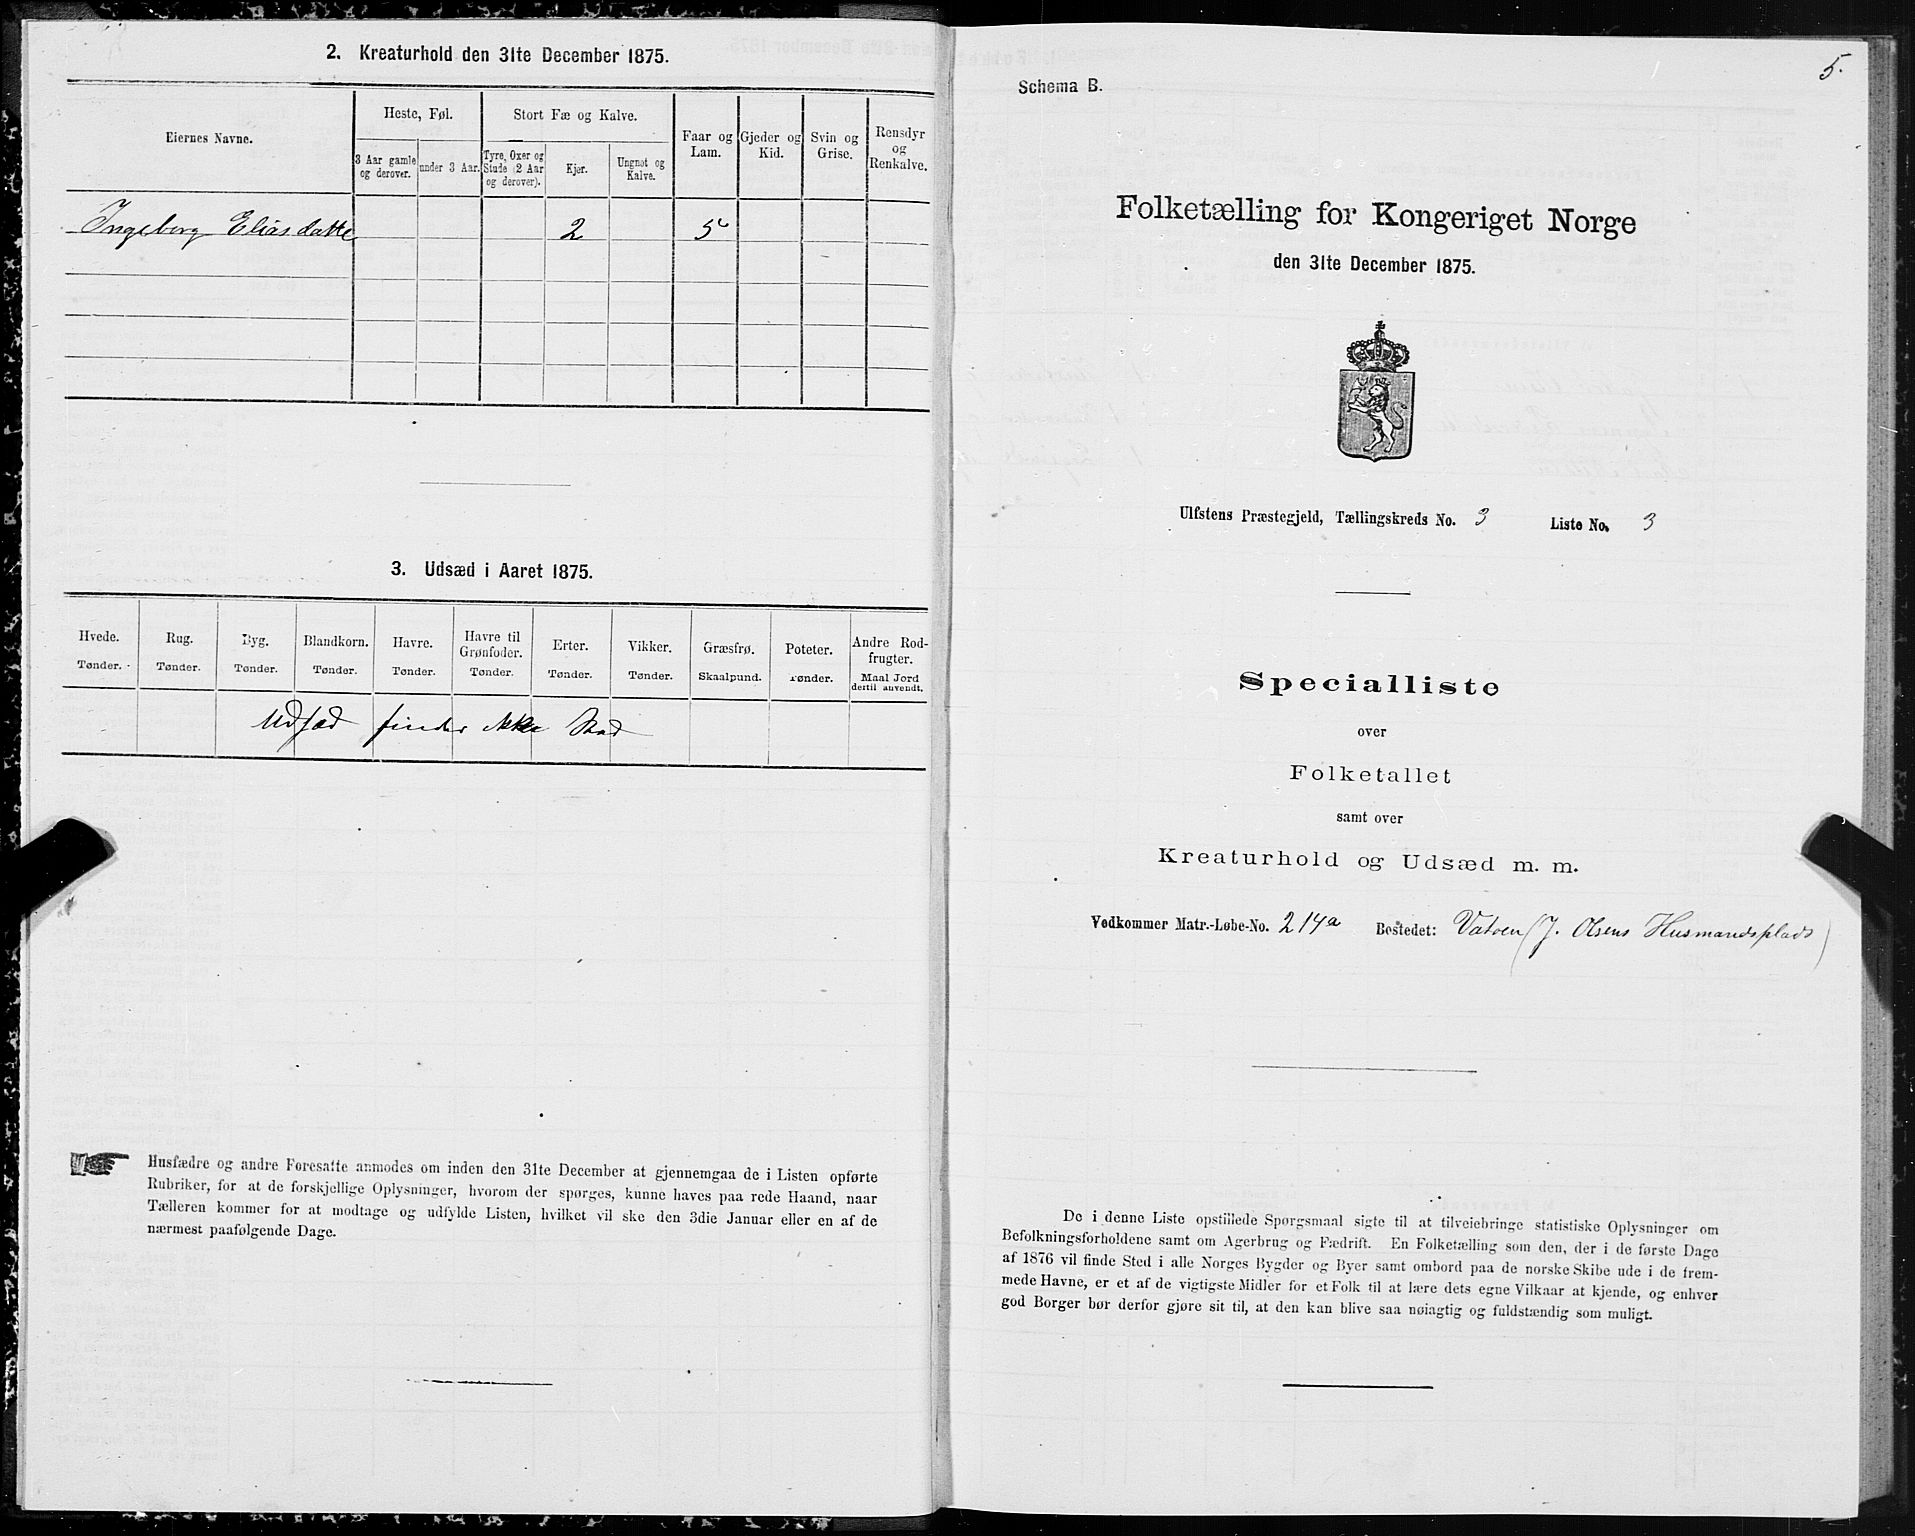 2. Kreaturhold den 31te December 1875.
Eiernes Navne.
Heste, Føl.
Stort Fæ og Kalve.
Faar og Lam.
Gjeder og Kid.
Svin og Grise.
Rensdyr og Renkalve.
3 Aar gamle og derover.
under 3 Aar.
Tyre, Oxer og Stude (2 Aar og derover).
Kjør.
Ungnøt og Kalve.
Ingeborg Eliasdatte 2 5
3. Udsæd i Aaret 1875.
Hvede. Tønder.
Rug. Tønder.
Byg. Tønder.
Blandkorn. Tønder.
Havre. Tønder.
Havre til Grønfoder. Tønder.
Erter. Tønder.
Vikker. Tønder.
Græsfrø. Skaalpund.
Poteter. Tønder.
Andre Rodfrugter. Maal Jord dertil anvendt.
Udsæd finder ikke Sted
Husfædre og andre Foresatte anmodes om inden den 31te December at gjennemgaa de i Listen opførte
Rubriker, for at de forskjellige Oplysninger, hvorom der spørges, kunne haves paa rede Haand, naar
Tælleren kommer for at modtage og udfylde Listen, hvilket vil ske den 3die Januar eller en af de
nærmest paafølgende Dage.
5.
Schema B.
Folketælling for Kongeriget Norge
den 31te December 1875.
Ulfstens Præstegjeld, Tællingskreds No. 3 Liste No. 3
Specialliste
over
Folketallet
samt over
Kreaturhold og Udsæd m. m.
Vedkommer Matr.-Løbe-No. 214a Bostedet: Vatoen (J. Olsens Husmandsplads)
De i denne Liste opstillede Spørgsmaal sigte til at tilveiebringe statistiske Oplysninger om
Befolkningsforholdene samt om Agerbrug og Fædrift. En Folketælling som den, der i de første Dage
af 1876 vil finde Sted i alle Norges Bygder og Byer samt ombord paa de norske Skibe ude i de frem-
mede Havne, er et af de vigtigste Midler for et Folk til at lære dets egne Vilkaar at kjende, og enhver
god Borger bør derfor gjøre sit til, at den kan blive saa nøiagtig og fuldstændig som muligt.